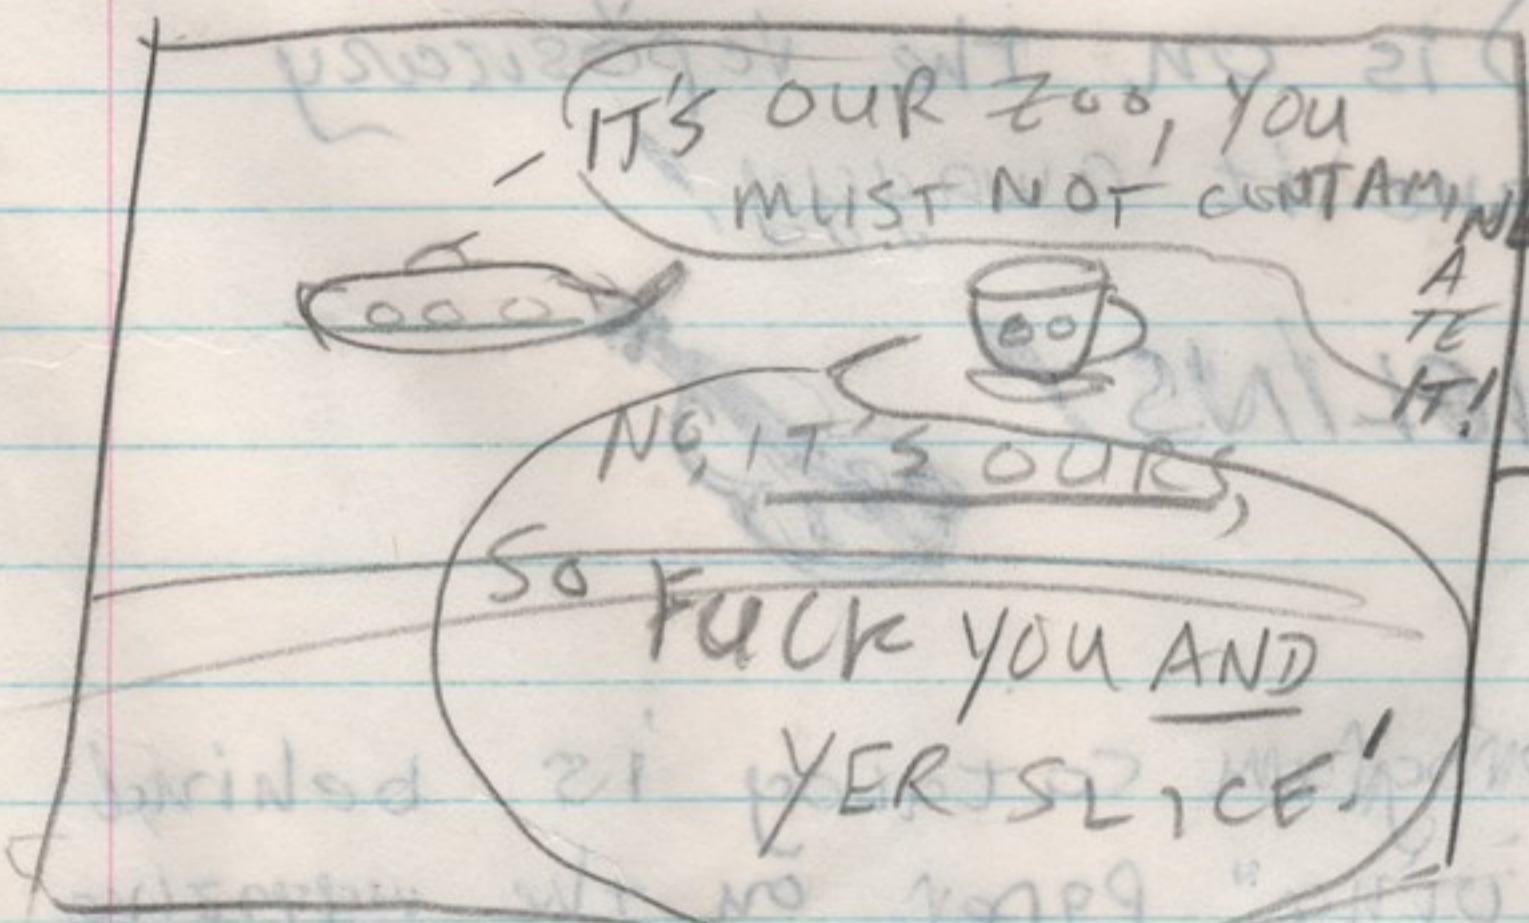 IT'S OUR ZOO, YOU
MUST NOT CONTAMIN
A
TE
IT!
NO, IT'S OURS,
SO FUCK YOU AND
YER SLICE!